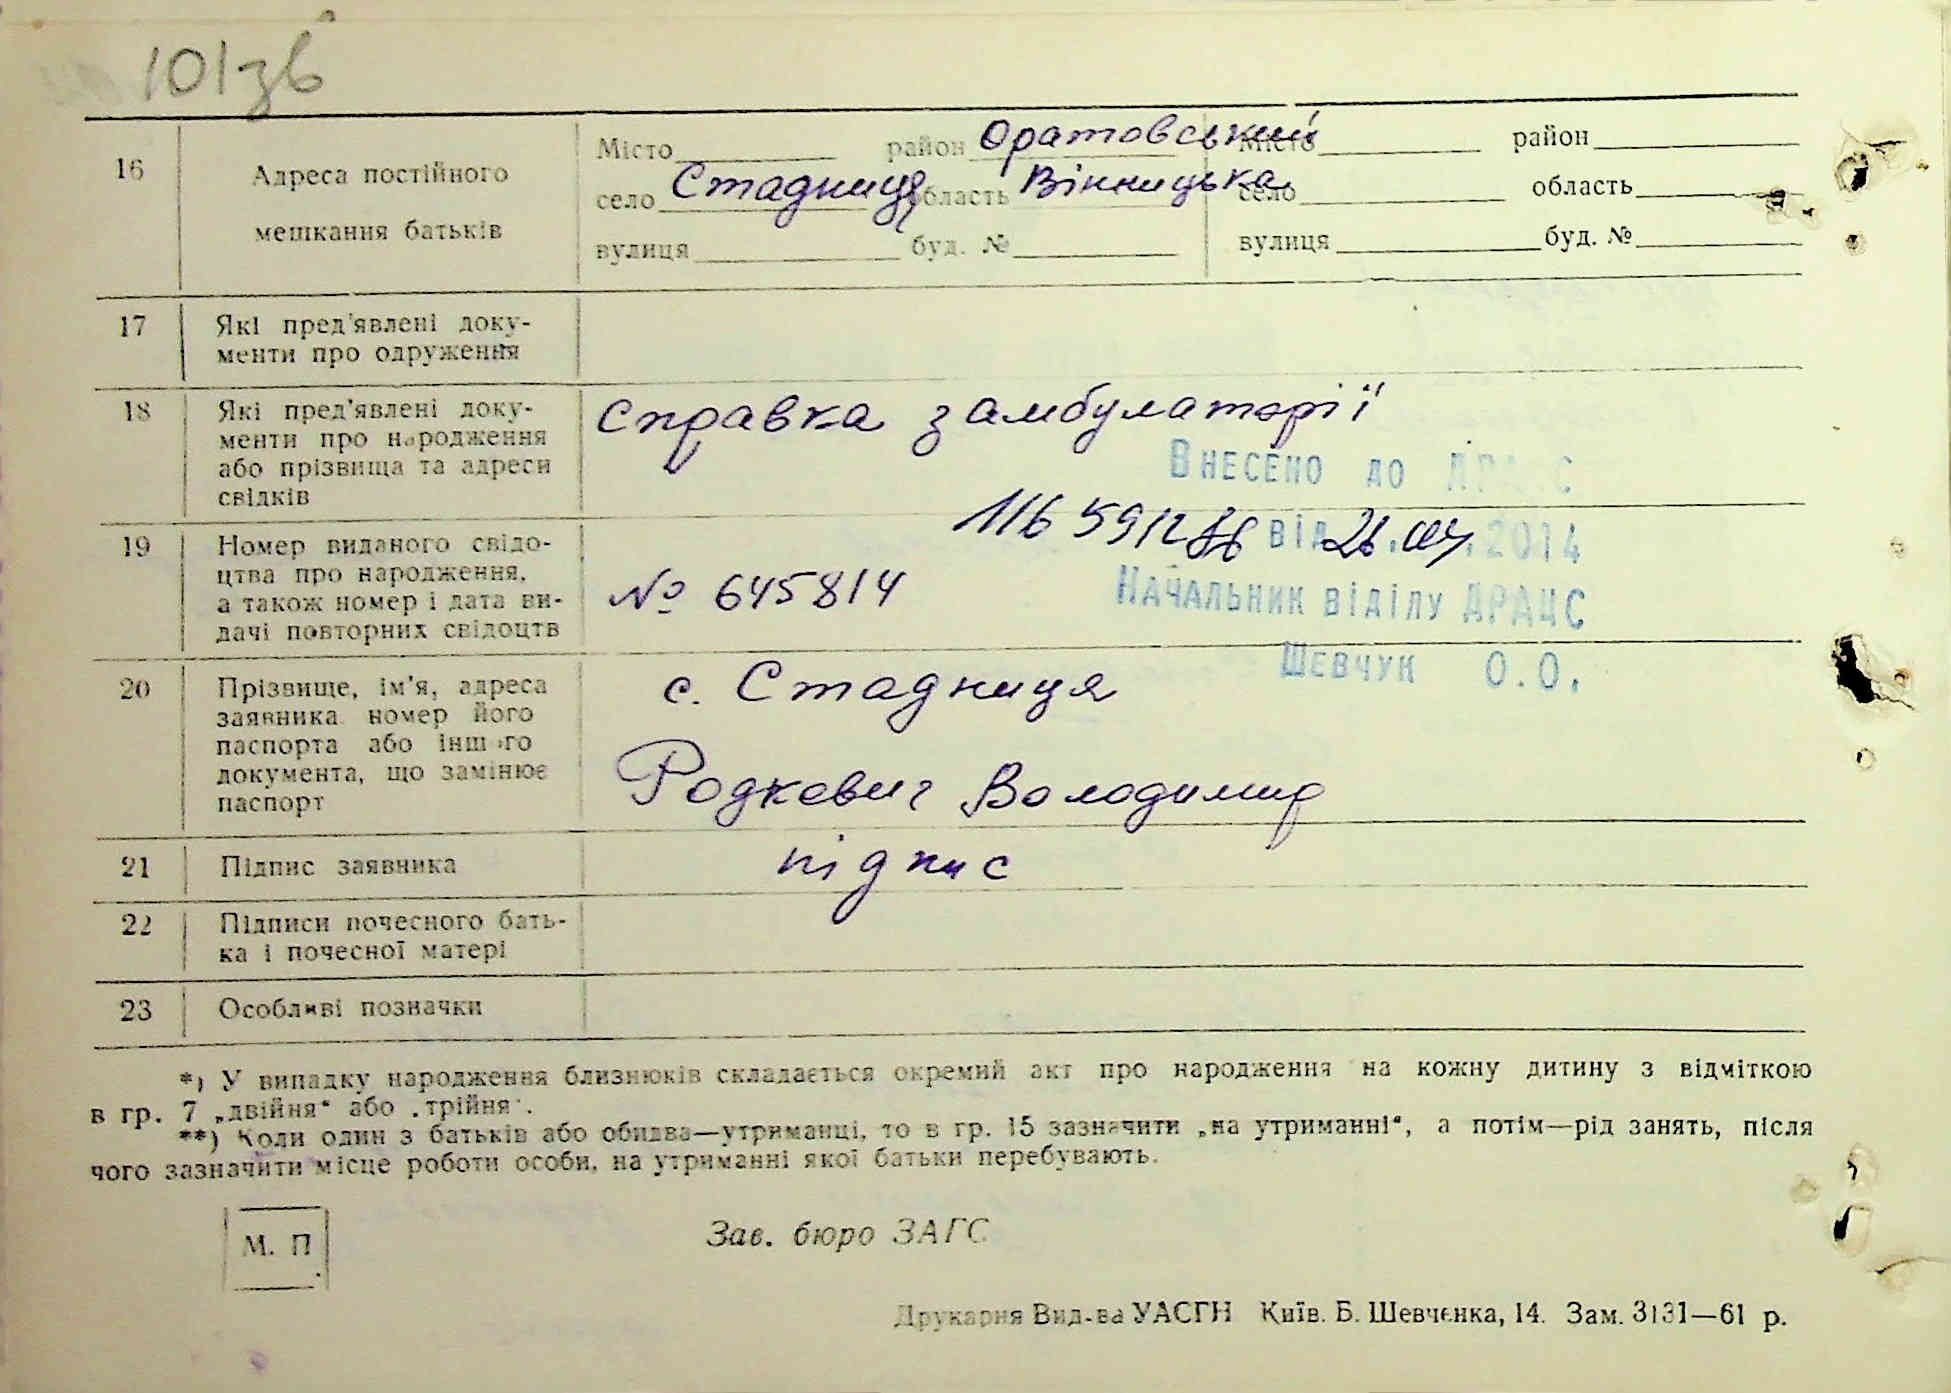 101зв
16 Адреса постійного мешкання батьків
Місто район Оратовський Місто район
село Стадниця область Вінницька село область
вулиця буд. № вулиця буд. №
17 Які пред'явлені доку-
менти про одруження
18 Які пред'явлені доку-
менти про народження
або прізвища та адреси
свідків
Справка з амбулаторії
Внесено до ДРАЦС
від 26. 04. 2014
Начальник відділу ДРАЦС
Шевчук О.О.
19 Номер виданого свідо-
цтва про народження,
а також номер і дата ви-
дачі повторних свідоцтв
№ 645814
20 Прізвище, ім'я, адреса
заявника номер його
паспорта або іншого
документа, що замінює
паспорт
с. Стадниця
Родкевич Володимир
21 Підпис заявника підпис
22 Підписи почесного бать-
ка і почесної матері
23 Особливі позначки
*) У випадку народження близнюків складається окремий акт про народження на кожну дитину з відміткою
в гр. 7 „двійня“ або „трійня“.
**) Коли один з батьків або обидва—утриманці, то в гр. 15 зазначити „на утриманні“, а потім—рід занять, після
чого зазначити місце роботи особи, на утриманні якої батьки перебувають.
М. П.
Зав. бюро ЗАГС
Друкарня Вид-ва УАСГН Київ. Б. Шевченка, 14. Зам. 3131—61 р.